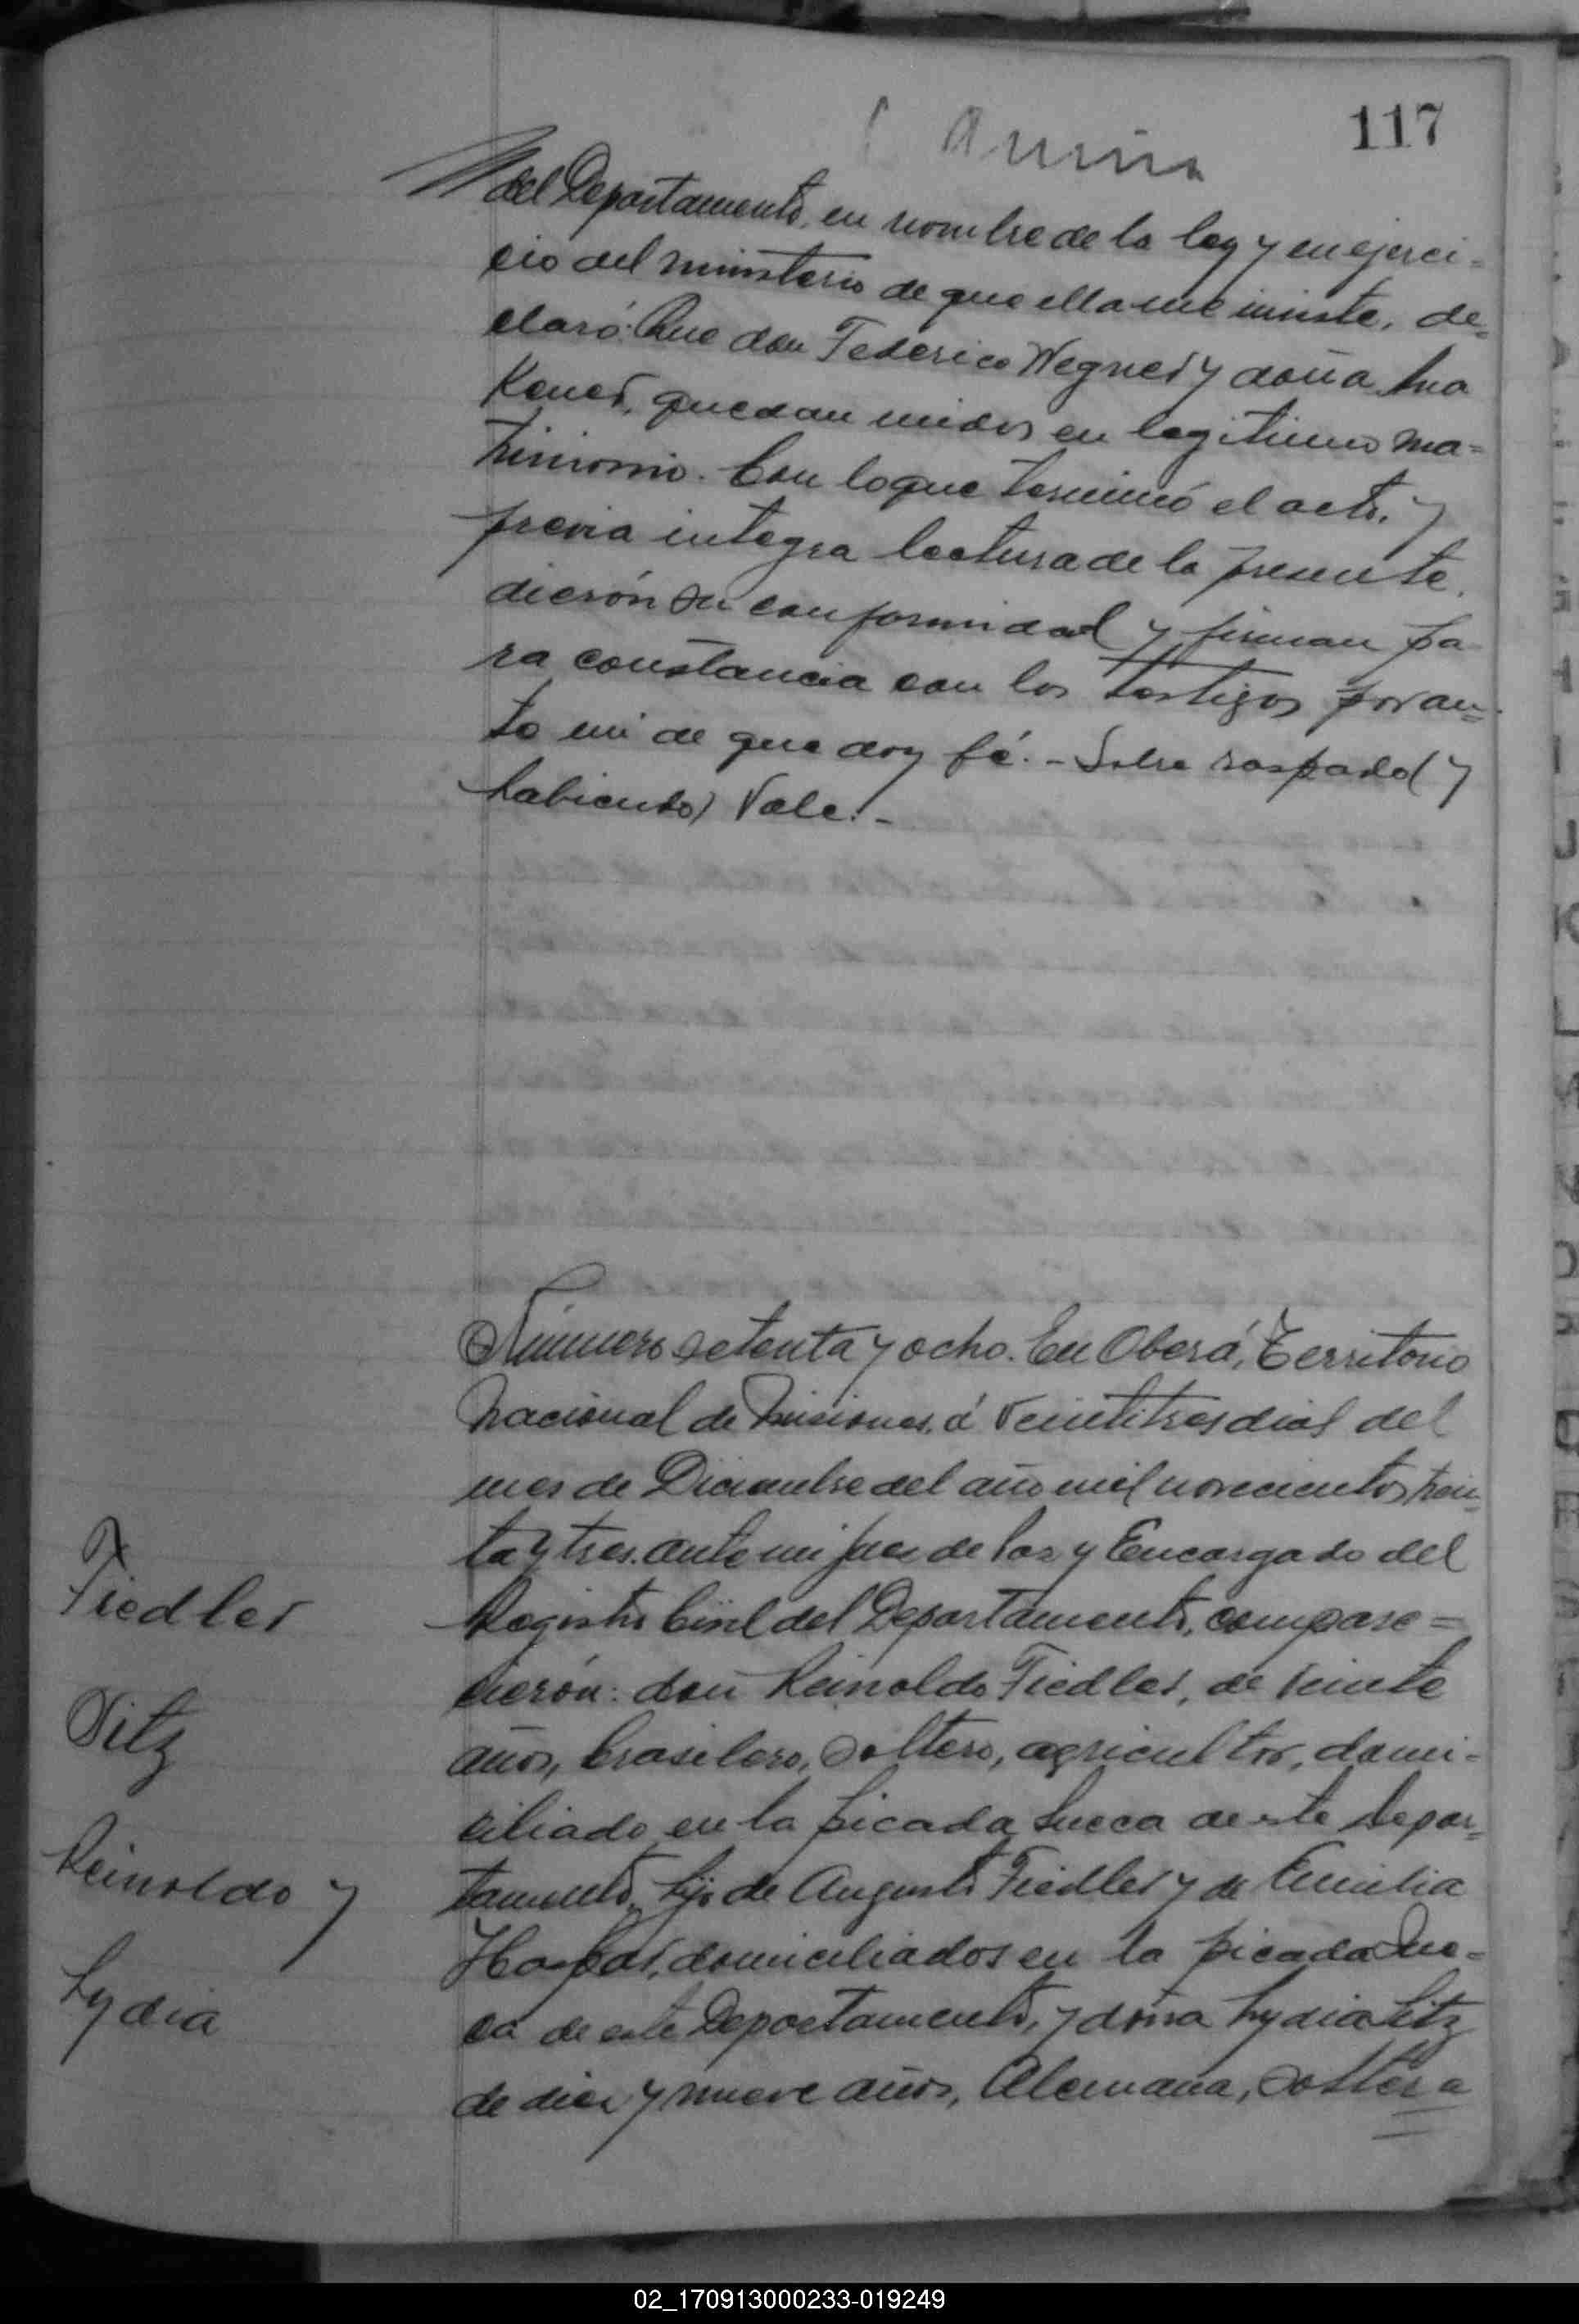 117
del Departamento, en nombre de la ley y en ejerci=
cio del ministerio de que ella me inviste, de=
claró: Que don Federico Wegner y doña Ana
Kener, quedan unidos en legitimo ma=
trimonio. Con lo que terminó el acto, y
previa integra lectura de la presente,
dierón su conformidad y firman pa-
ra constancia con los testigos por an=
te mi de que doy fé. - Sobre raspado (y
habiendo) Vale. -
Número setenta y ocho. En Oberá, Territorio
Nacional de Misiones, á Veintitres dias del
mes de Diciembre del año mil novecientos trein=
ta y tres, ante mi Juez de Paz y Encargado del
Registro Civil del Departamento, compare=
cierón: don Reinoldo Fiedler, de veinte
años, brasilero, soltero, agricultor, domi=
ciliado en la picada Sueca de este Depar=
tamento, hijo de Augusto Fiedler y de Emilia
domiciliados en la picada Sue=
ca de este Departamento, y doña Lydia Titz
de diez y nueve años, Alemana, soltera
Fiedler
Titz
Reinoldo y
Lydia
02_170913000233-019249